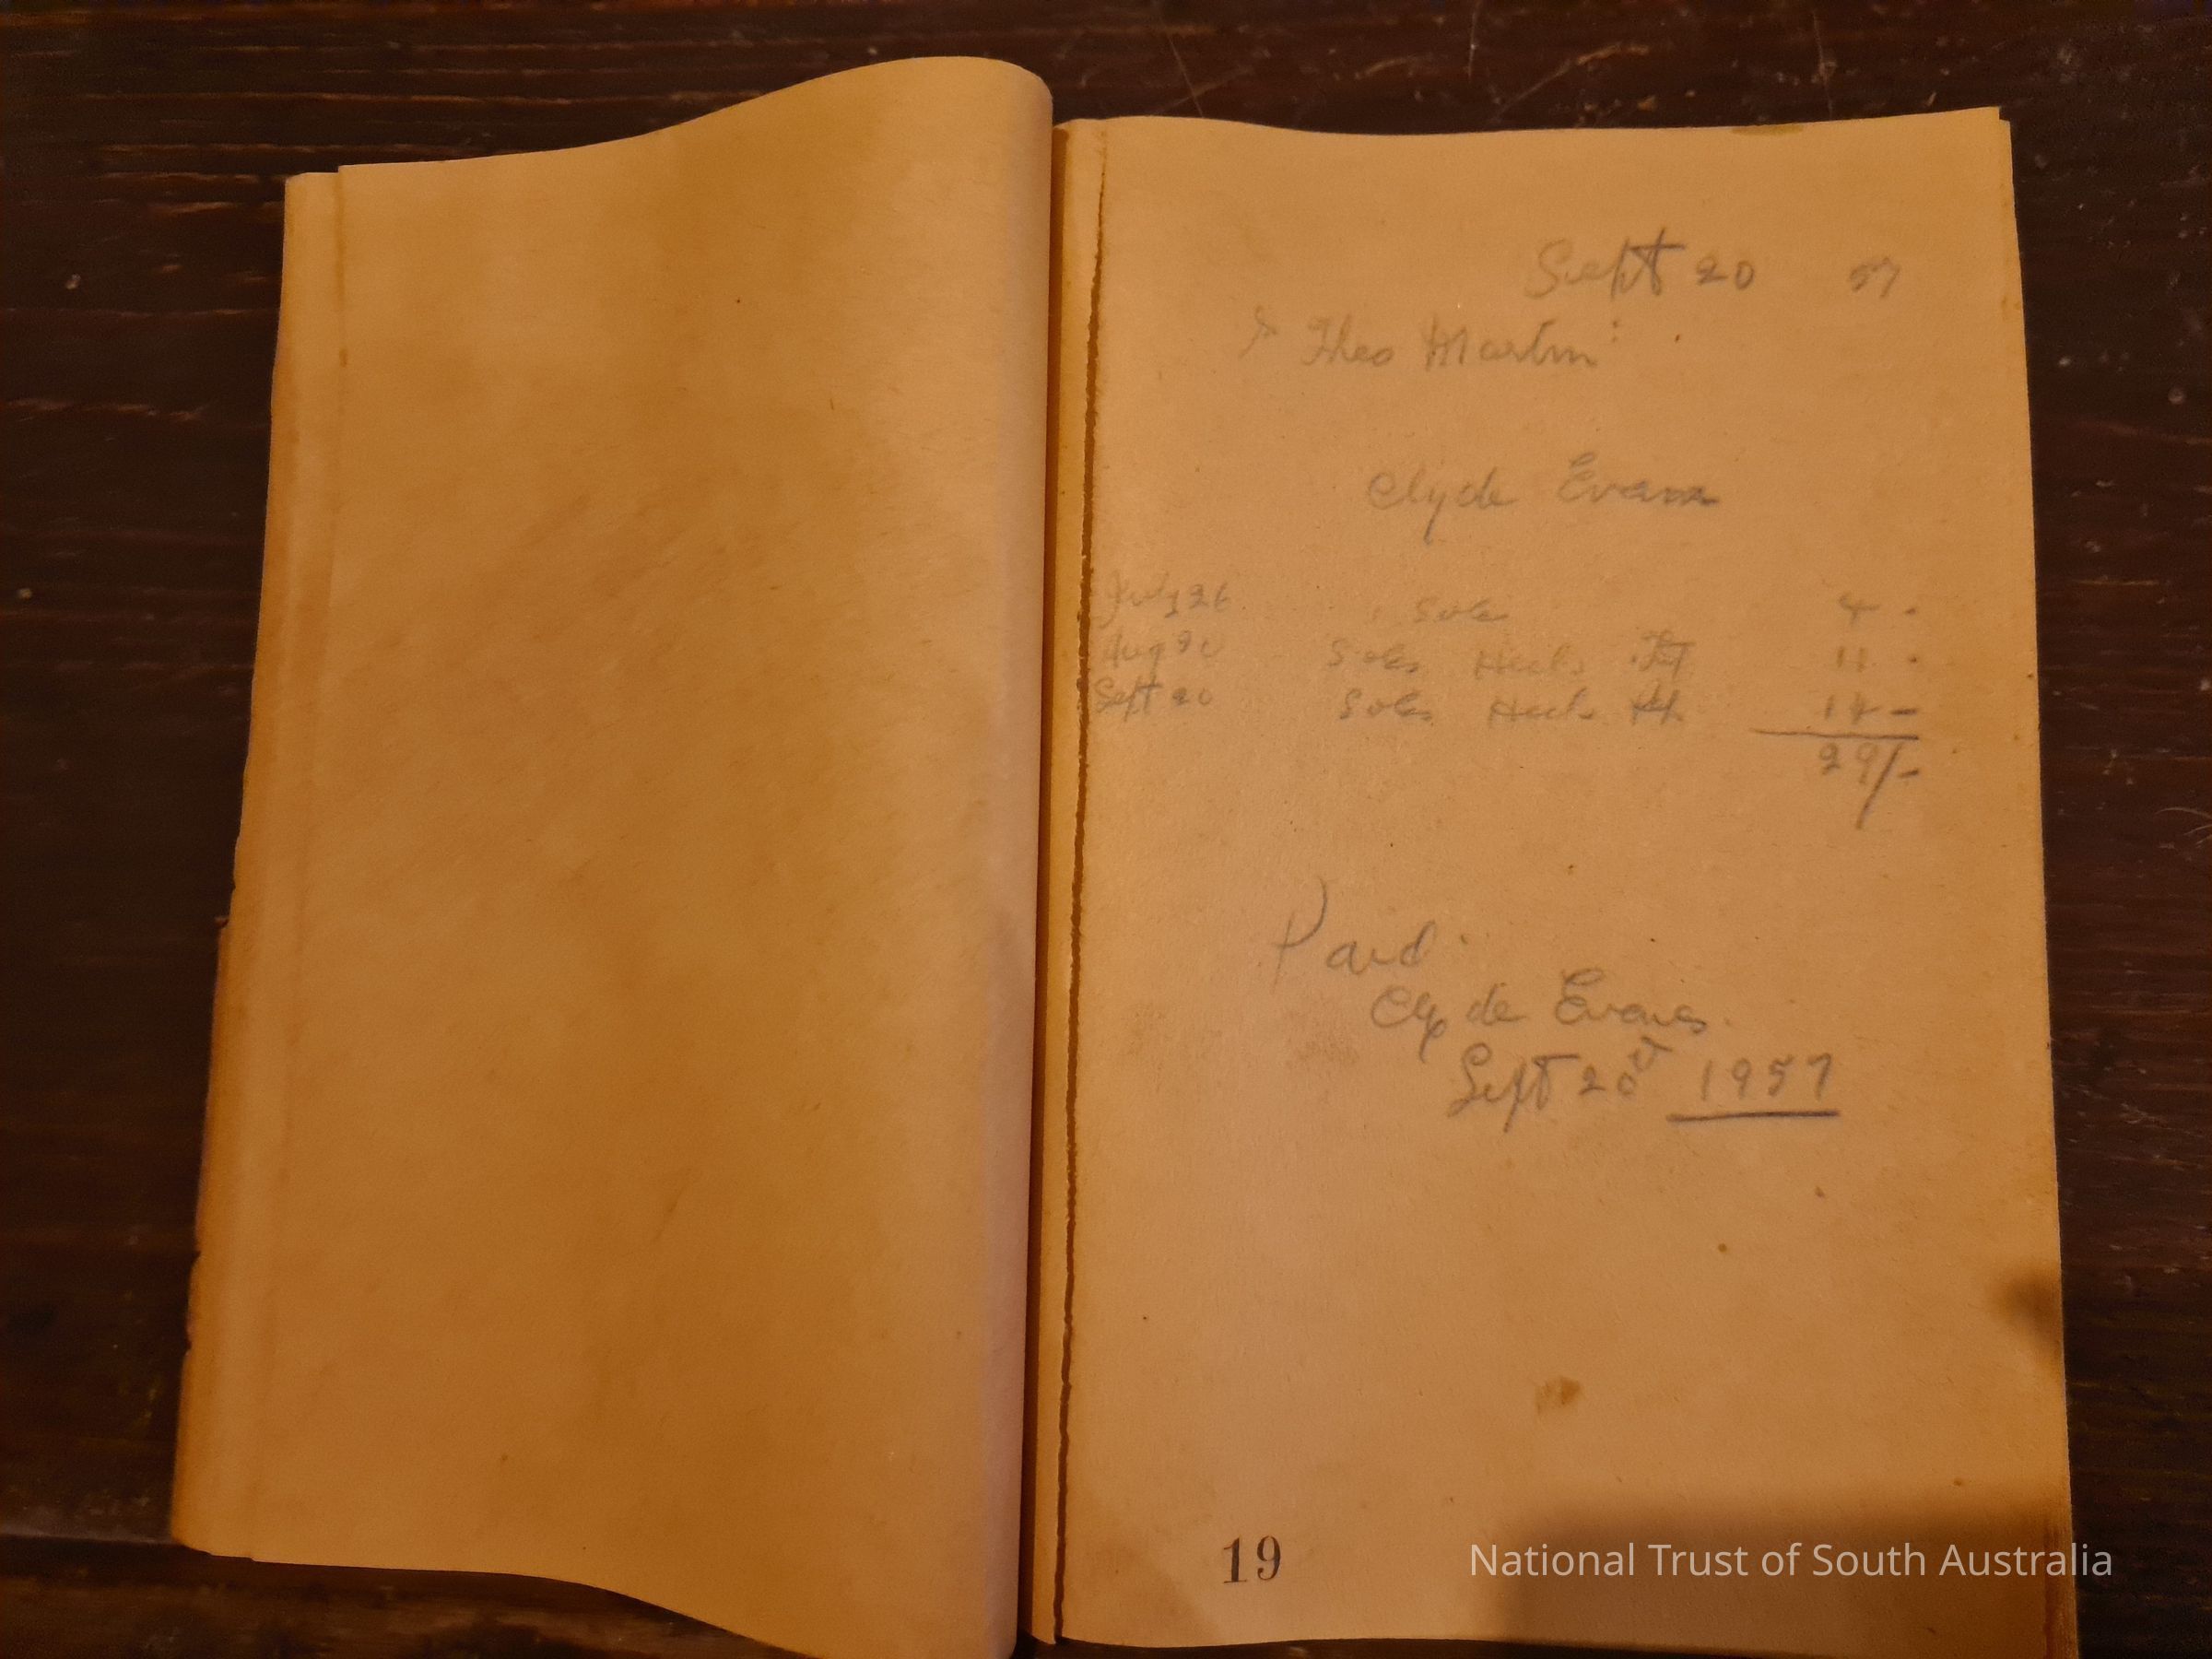 Sept 20 57
Theo Martin
Clyde Evans
July 26 Soles 4 -
Aug 20 Soles Heels 11 -
Sept 20 Soles Heels 14 -
29/-
Paid
Clyde Evans.
Sept 20 1957
19
National Trust of South Australia